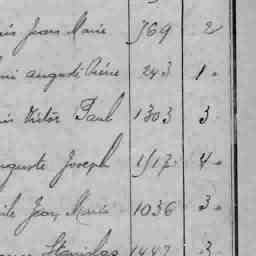 Jean Marie 769 2
auguste 243 1.
Victor Paul 1303 3.
uguste Joseph 1517. 4.
ile Jean Marie 1036 3.
Stanislas 1447 3.